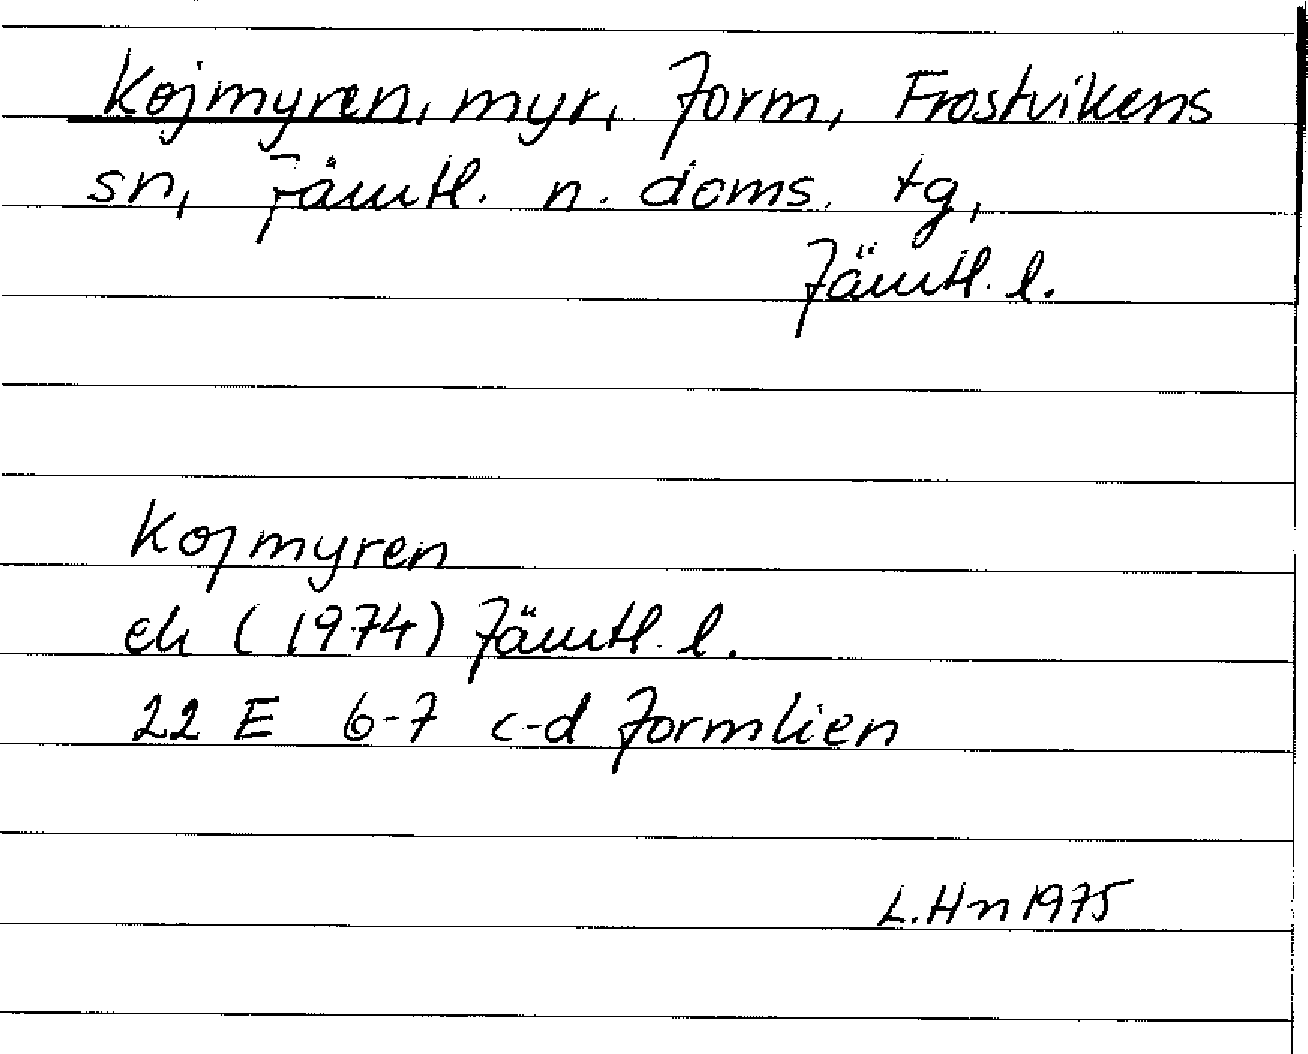 Kojmyren, myr, Jorm, Frostvikens
sn, Jämtl. n. doms. tg,
Jämtl. l.
Kojmyren
ek (1974) Jämtl. l.
22 E 6-7 c-d Jormlien
L. Hn 1975